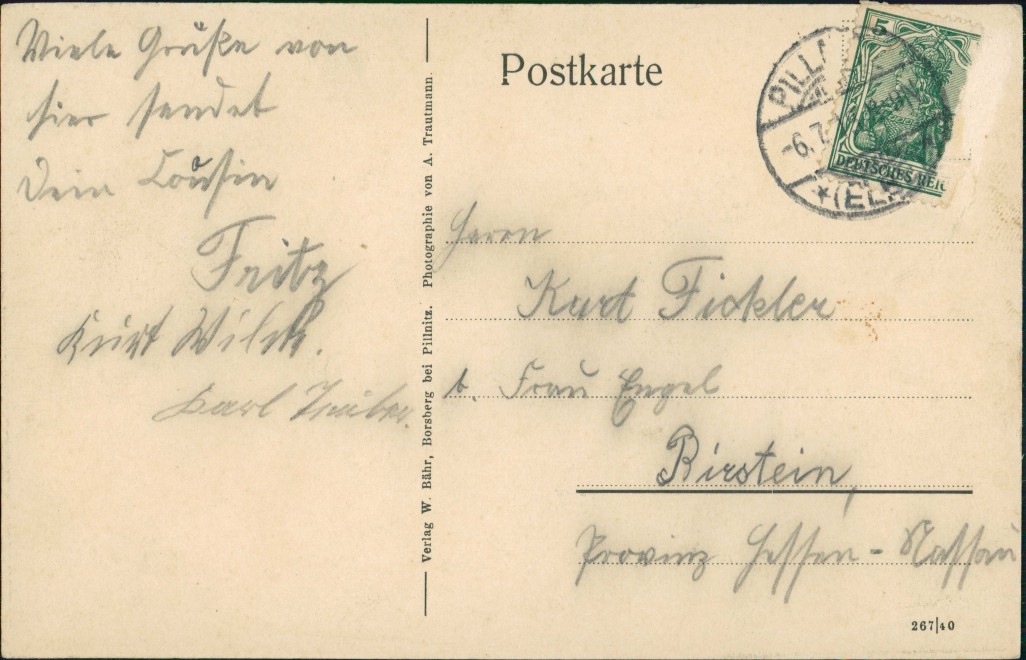 Viele Grüße von
hier sendet
Dein Cousin
Fritz
Kurt Wilck.
Karl
Verlag W. Bähr, Borsberg bei Pillnitz. Photographie von A. Trautmann.
Postkarte
5
DEUTSCHES REIC
PILL
-6.7.
*(EL
Herrn
Kurt Fickler
b. Frau Engel
Birstein,
Provinz Hessen-Nassau
267|40